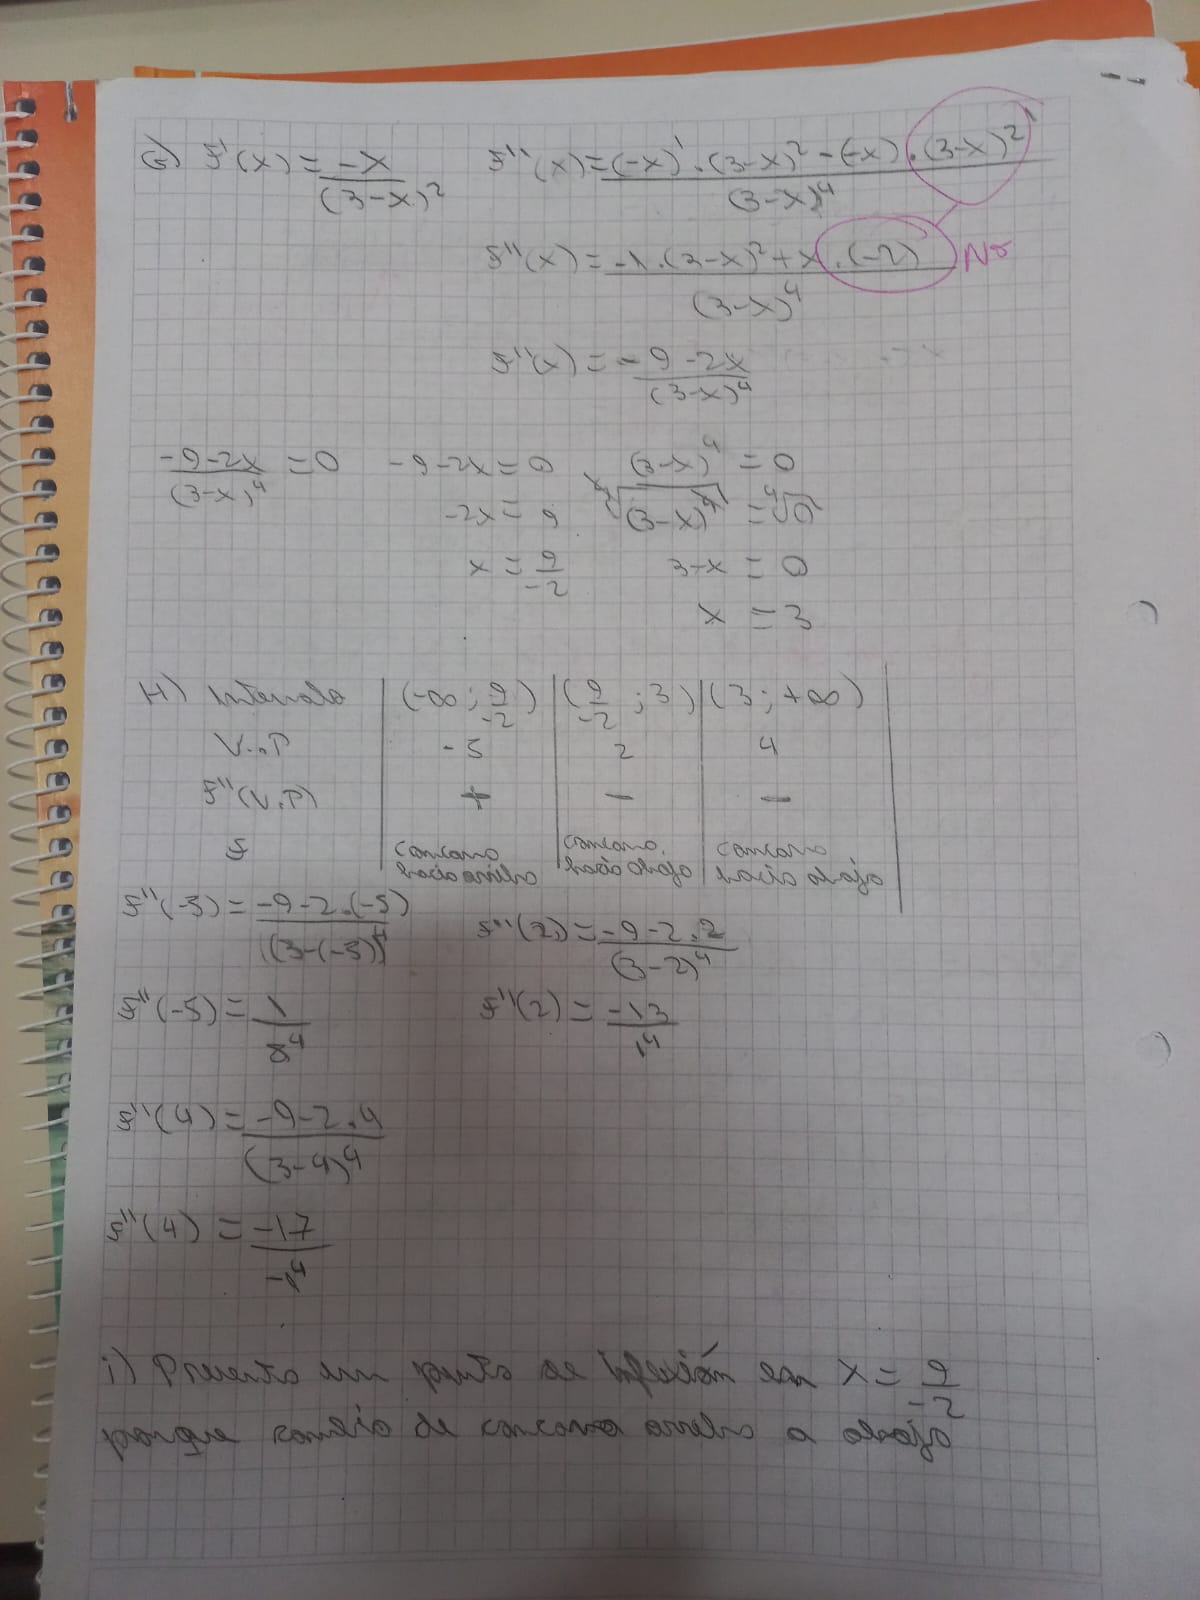 G) f'(x) = -x / (3-x)² f''(x) = (-x)' · (3-x)² - (-x) · (3-x)²' / (3-x)⁴
f''(x) = -1 · (3-x)² + x · (-2) / (3-x)⁴ No
f''(x) = -9-2x / (3-x)⁴
-9-2x / (3-x)⁴ = 0 -9-2x = 0 (3-x)⁴ = 0
-2x = 9 ⁴√(3-x)⁴ = ⁴√0
x = 9/-2 3-x = 0
x = 3
H) Intervalo (-∞; 9/-2) (9/-2; 3) (3; +∞)
V.P -5 2 4
f''(V.P) + - -
f concavo hacia arriba concavo hacia abajo concavo hacia abajo
f''(-5) = -9-2·(-5) / (3-(-5))⁴ f''(2) = -9-2·2 / (3-2)⁴
f''(-5) = 1 / 8⁴ f''(2) = -13 / 1⁴
f''(4) = -9-2·4 / (3-4)⁴
f''(4) = -17 / -1⁴
i) Presento un punto de inflexión en x = 9/-2
porque cambio de concava arriba a abajo